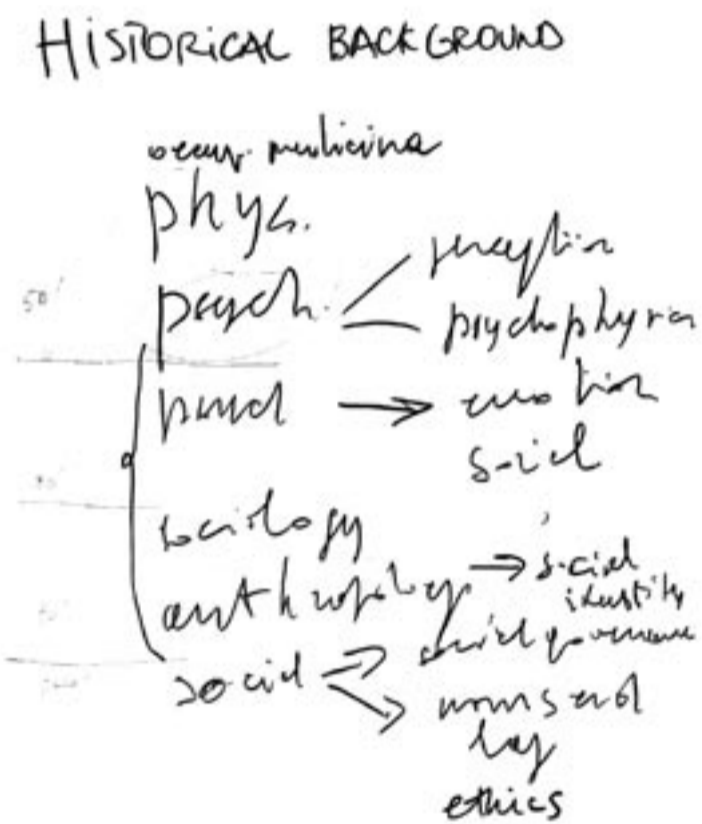 HiSTORiCAL BACKGROUND
occup. medicina
phys.
perception
50'
psych.
psychophysics
psych
emotion
social
sociology
anthropology
social
identity
social
social governance
norms and
law
ethics